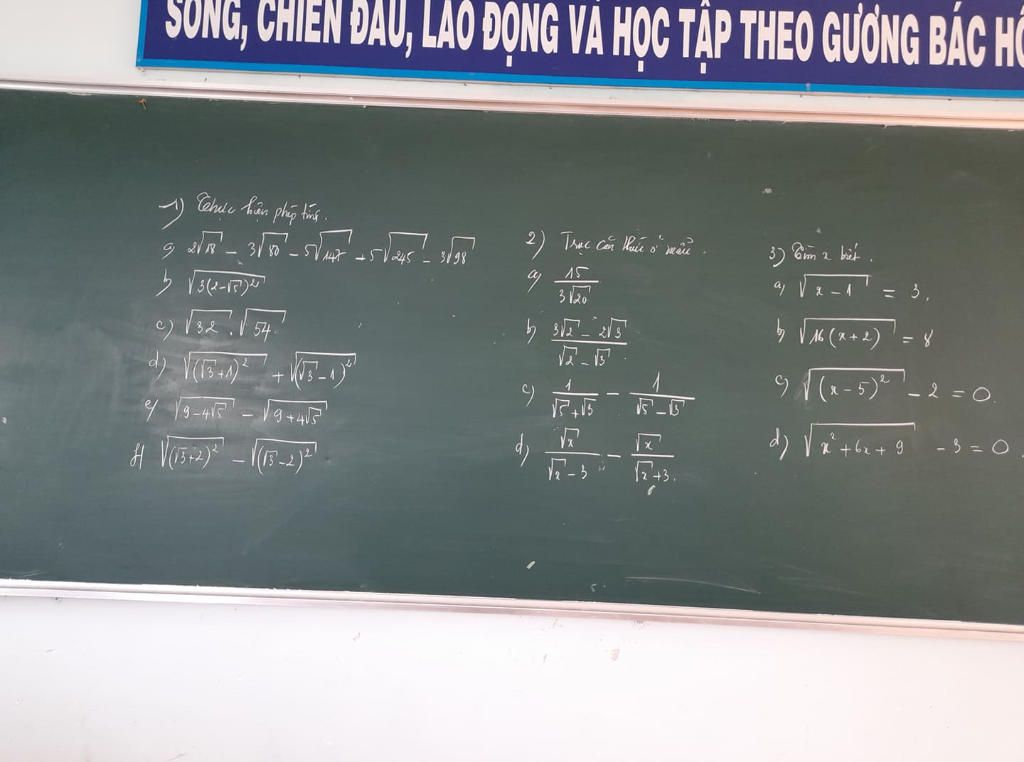 SỐNG, CHIẾN ĐẤU, LAO ĐỘNG VÀ HỌC TẬP THEO GƯƠNG BÁC HỒ
1) Thực hiện phép tính.
a) 2√18 - 3√80 - 5√147 + 5√245 - 3√98
b) √(3(2-√5)²)
c) √32 . √54
d) √((√3+1)²) + √((√3-1)²)
e) √(9-4√5) - √(9+4√5)
f) √((√3+2)²) - √((√3-2)²)
2) Trục căn thức ở mẫu.
a) 15/(3√20)
b) (3√2 - 2√3)/(√2 - √3)
c) 1/(√5+√3) - 1/(√5-√3)
d) √x/(√x-3) - √x/(√x+3).
3) Tìm x biết.
a) √(x-1) = 3.
b) √(16(x+2)) = 8
c) √((x-5)²) - 2 = 0.
d) √(x²+6x+9) - 3 = 0.